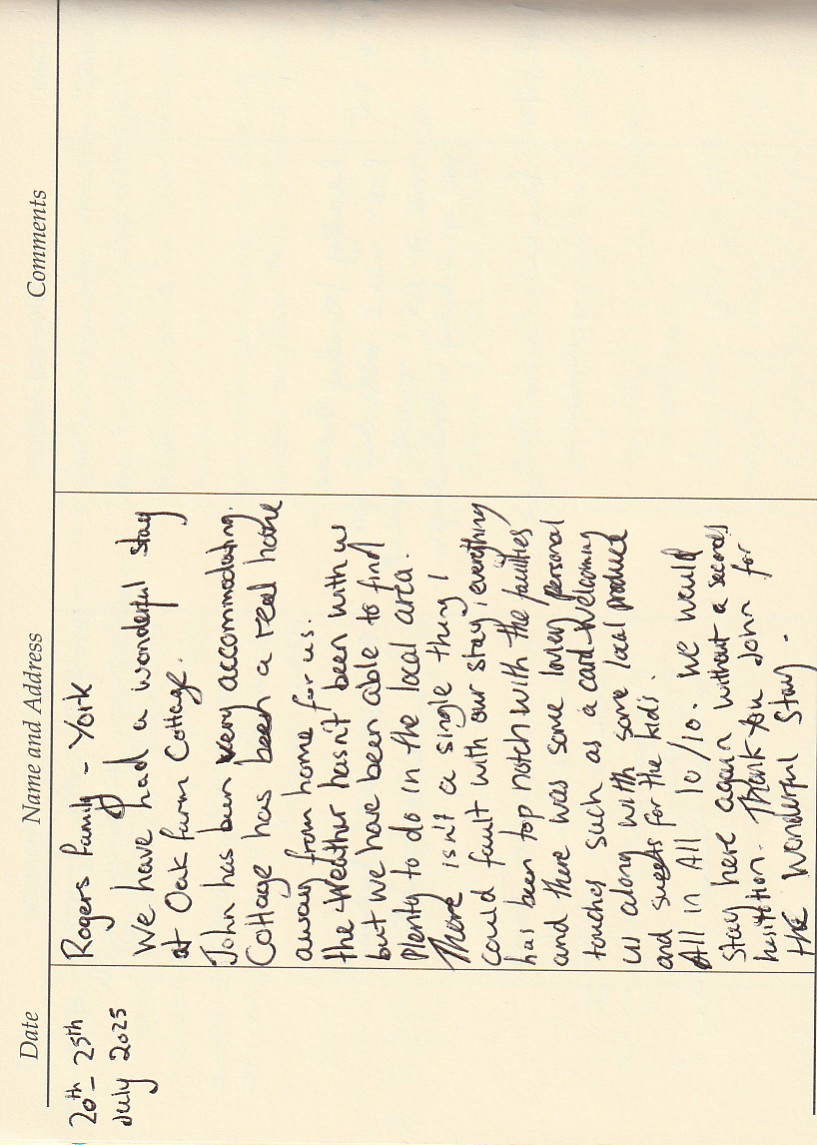 Date Name and Address Comments
20th - 25th
July 2025
Rogers Family - York
We have had a wonderful stay
at Oak farm Cottage.
John has been very accommodating.
Cottage has been a real home
away from home for us.
the Weather hasn't been with us
but we have been able to find
Plenty to do in the local area.
There isn't a single thing I
could fault with our stay, everything
has been top notch with the facilities
and there was some lovley personal
touches such as a card Welcoming
us along with some local produce
and sweets for the kids.
All in All 10/10. We would
Stay here again without a seconds
hesitation. Thank You John for
the wonderful Stay.